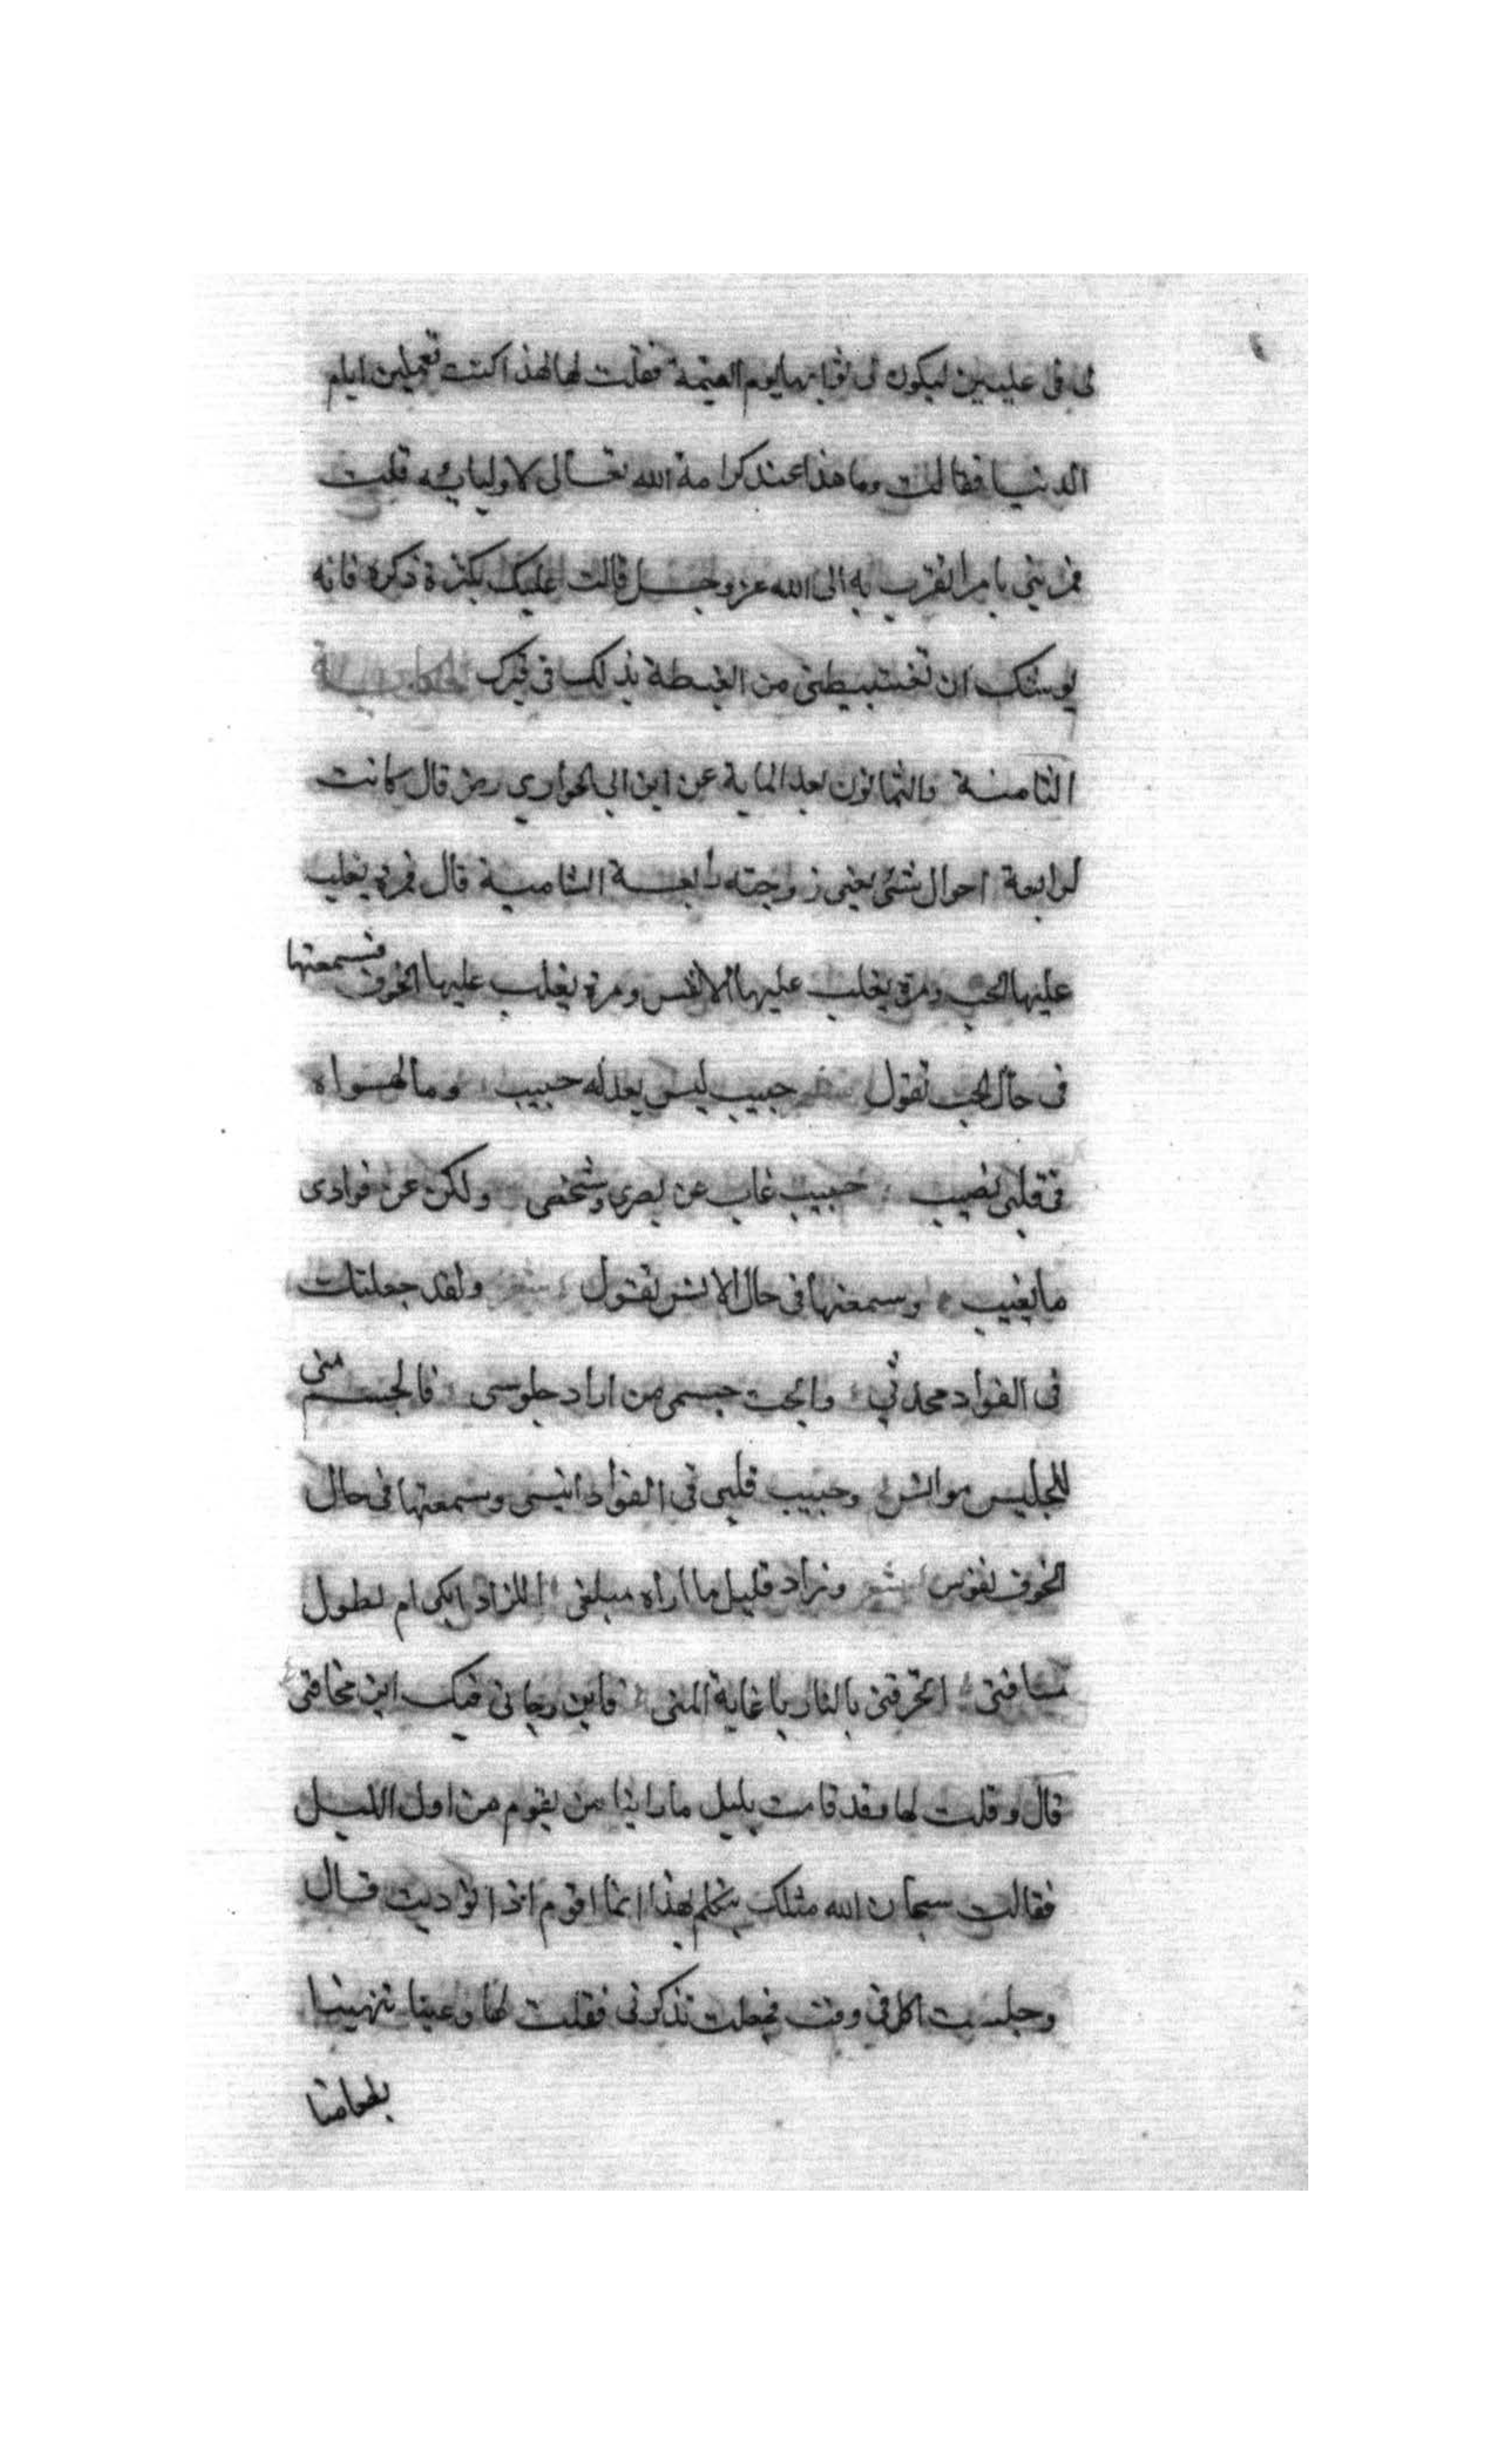 لى فى عليين ليكون لى ثوابها يوم القيمة فقلت لها لهذا كنت تعملين ايام
الدنيا فقالت وما هذا عند كرامة الله تعالى لاوليائه قلت
فمريني بامر اتقرب به الى الله عز وجل قالت عليك بكثرة ذكره فانه
يوشك ان تغتبطى من الغبطة بذلك فى قبرك الحكاية
الثامنة والثمانون بعد المایة عن ابن ابى الحوارى رض قال كانت
لرابعة احوال شتى يعنى زوجته رابعة الشامية قال فمرة يغلب
عليها الحب ومرة يغلب عليها الانس ومرة يغلب عليها الخوف فسمعتها
فى حال الحب تقول شعر حبيب ليس يعدله حبيب وما لسواه
فى قلبى نصيب حبيب غاب عن بصرى وشخصى ولكن عن فوادى
ما يغيب وسمعتها فى حال الانس تقول شعر ولقد جعلتك
فى الفواد محدثى وابحت جسمى من اراد جلوسى فالجسم منى
للجليس موانس وحبيب قلبى فى الفواد انيسى وسمعتها فى حال
الخوف تقول شعر وزاد قليل ما اراه مبلغى اللزاد ابكى ام لطول
مسافتى اتحرقنى بالنار يا غاية المنى فاين رجائى فيك اين مخافتى
قال وقلت لها وقد قامت بليل ما راينا من يقوم من اول الليل
فقالت سبحان الله مثلك يتكلم بهذا انما اقوم اذا نوديت قال
وجلست اكل فى وقت فجعلت تذكرنى فقلت لها دعينا تهنينا
بطعامنا